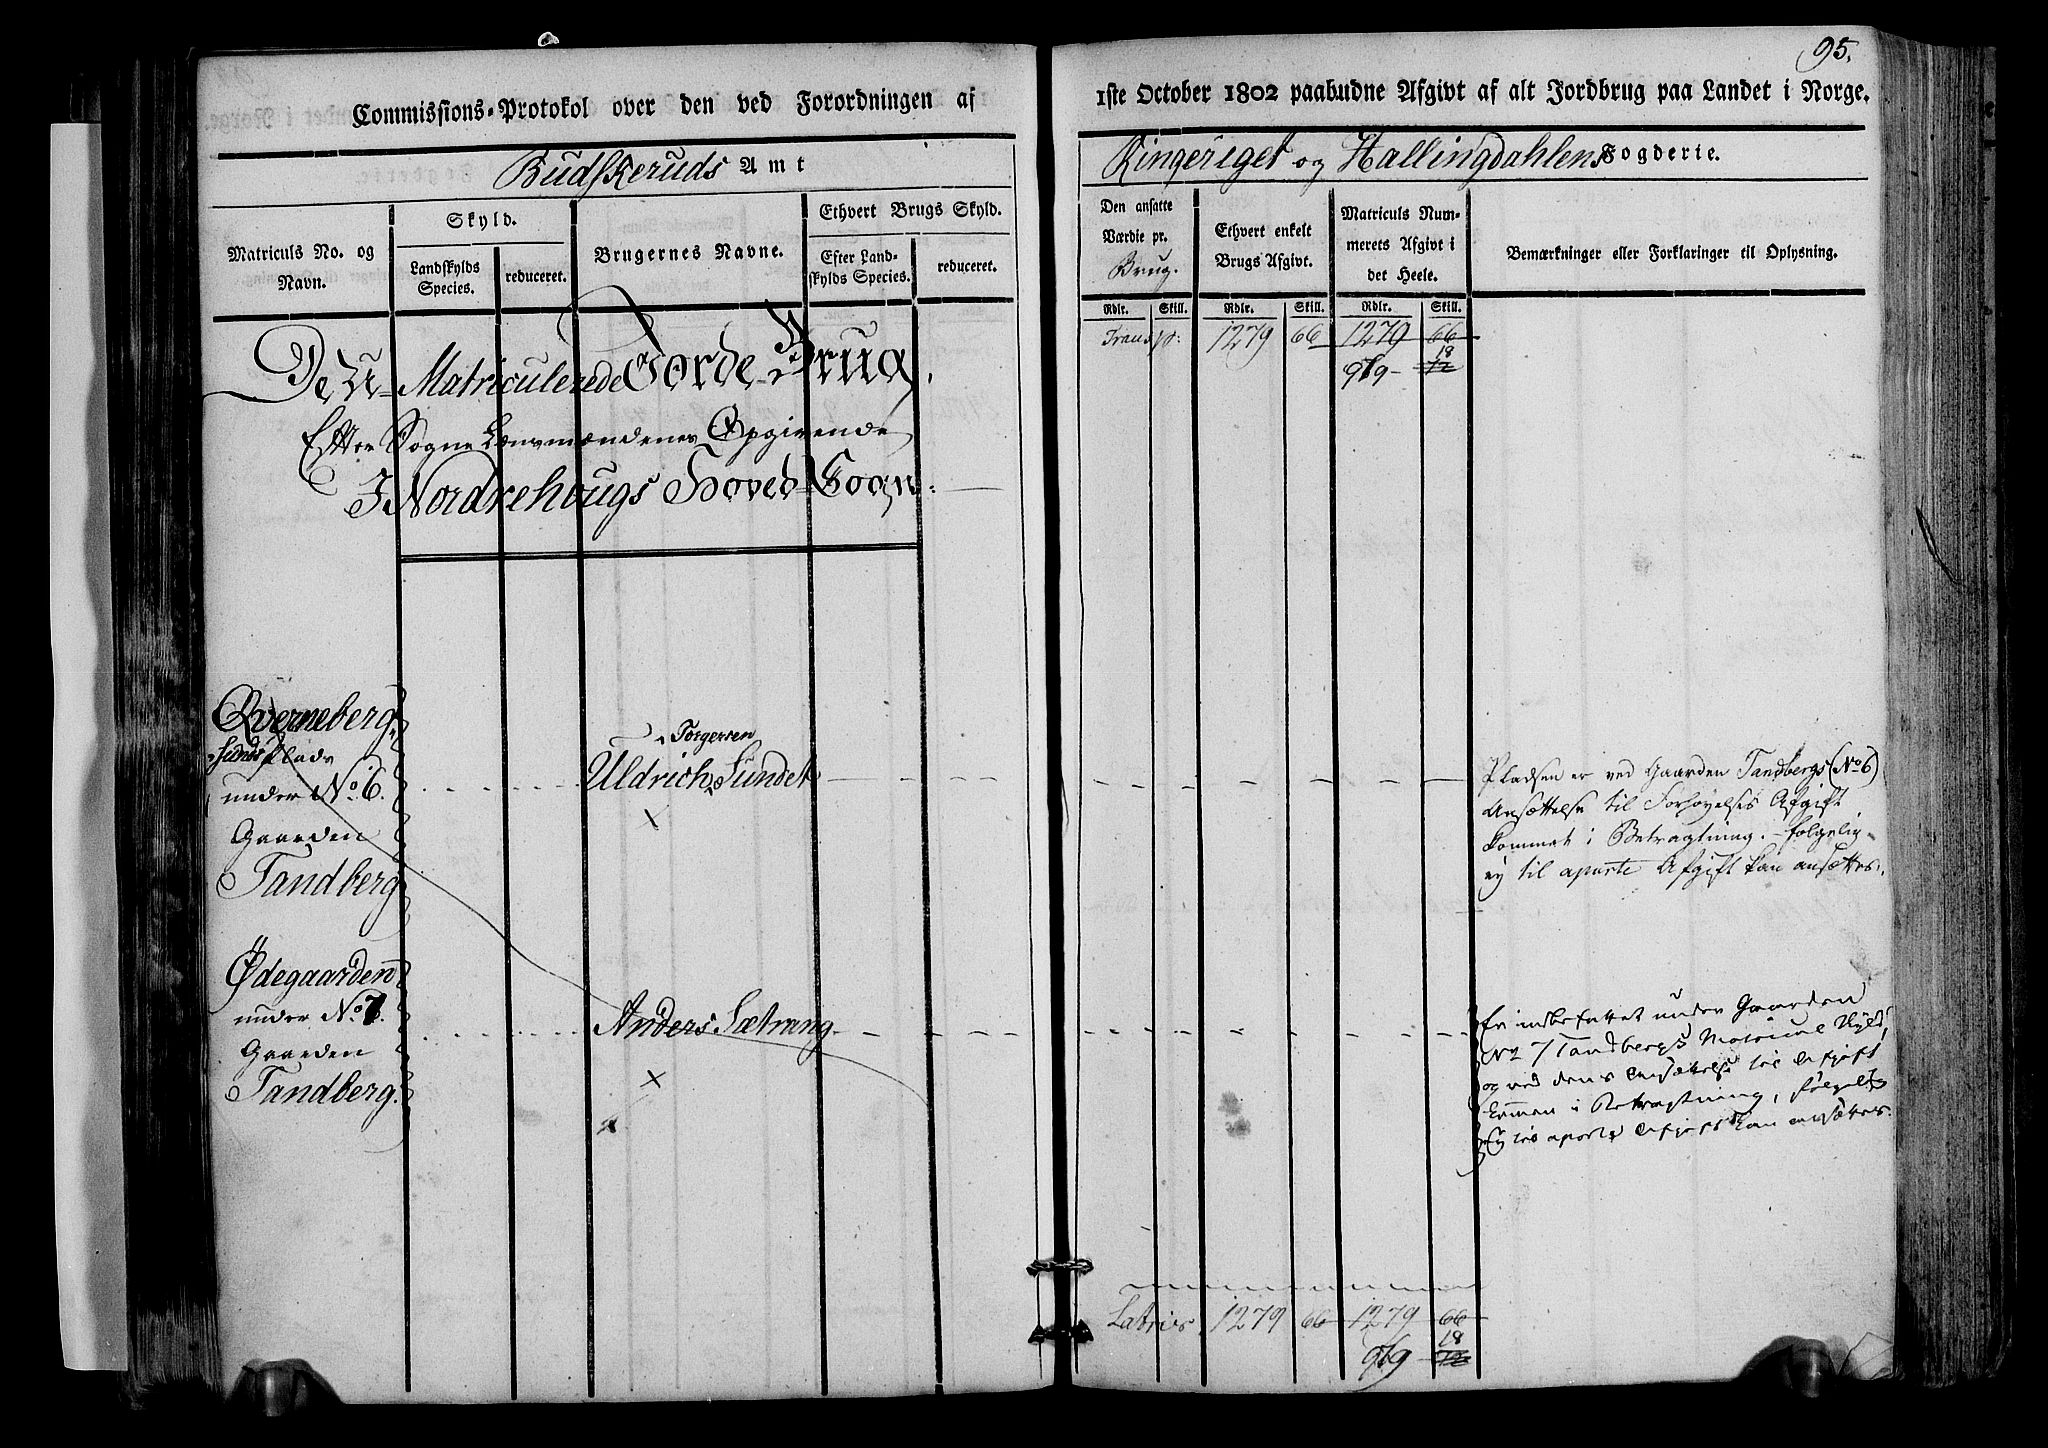 95.
Commissions-Protokol over den ved Forordningen af
1ste October 1802 paabudne Afgivt af alt Jordbrug paa Landet i Norge.
Budskeruds Amt
Ringeriget og Hallingdahlens Fogderie.
Matriculs No. og Navn.
Skyld.
Landskylds Species.
reduceret.
Brugernes Navne.
Ethvert Brugs Skyld.
Efter Landskylds Species.
reduceret.
Den ansatte Værdie pr. Brug.
Ethvert enkelt Brugs Afgivt.
Matriculs Nummerets Afgivt i det Heele.
Bemærkninger eller Forklaringer til Oplysning.
Rdlr. Skill. Rdlr. Skill. Rdlr. Skill.
Transp: 1279 66 1279 66
969 18
De U-Matriculerede Jorde-Brug,
Efter Sogne Lensmændenes Opgivende
I Nordrehougs Hoved-Sogn.
Qverneberg
Sunds Plads
under No. 6.
Gaarden
Tandberg
Torgersen
Uldrich Sundet
x
Pladsen er ved Gaarden Tandbergs (No 6)
Ansættelse til Forhøyelses Afgift
kommet i Betragtning. - følgelig
ey til aparte Afgift kan ansættes.
Ødegaarden
under No. 7.
Gaarden
Tandberg.
Anders Sætrang
x
x
Er indbefattet under Gaarden
No 7 Tandbergs Matricul Skyld,
og ved dens Ansættelse til Afgift
kommen i Betragtning, følgelig
Ey til aparte Afgift kan ansættes.
Lateris 1279 66 1279 66
969 18